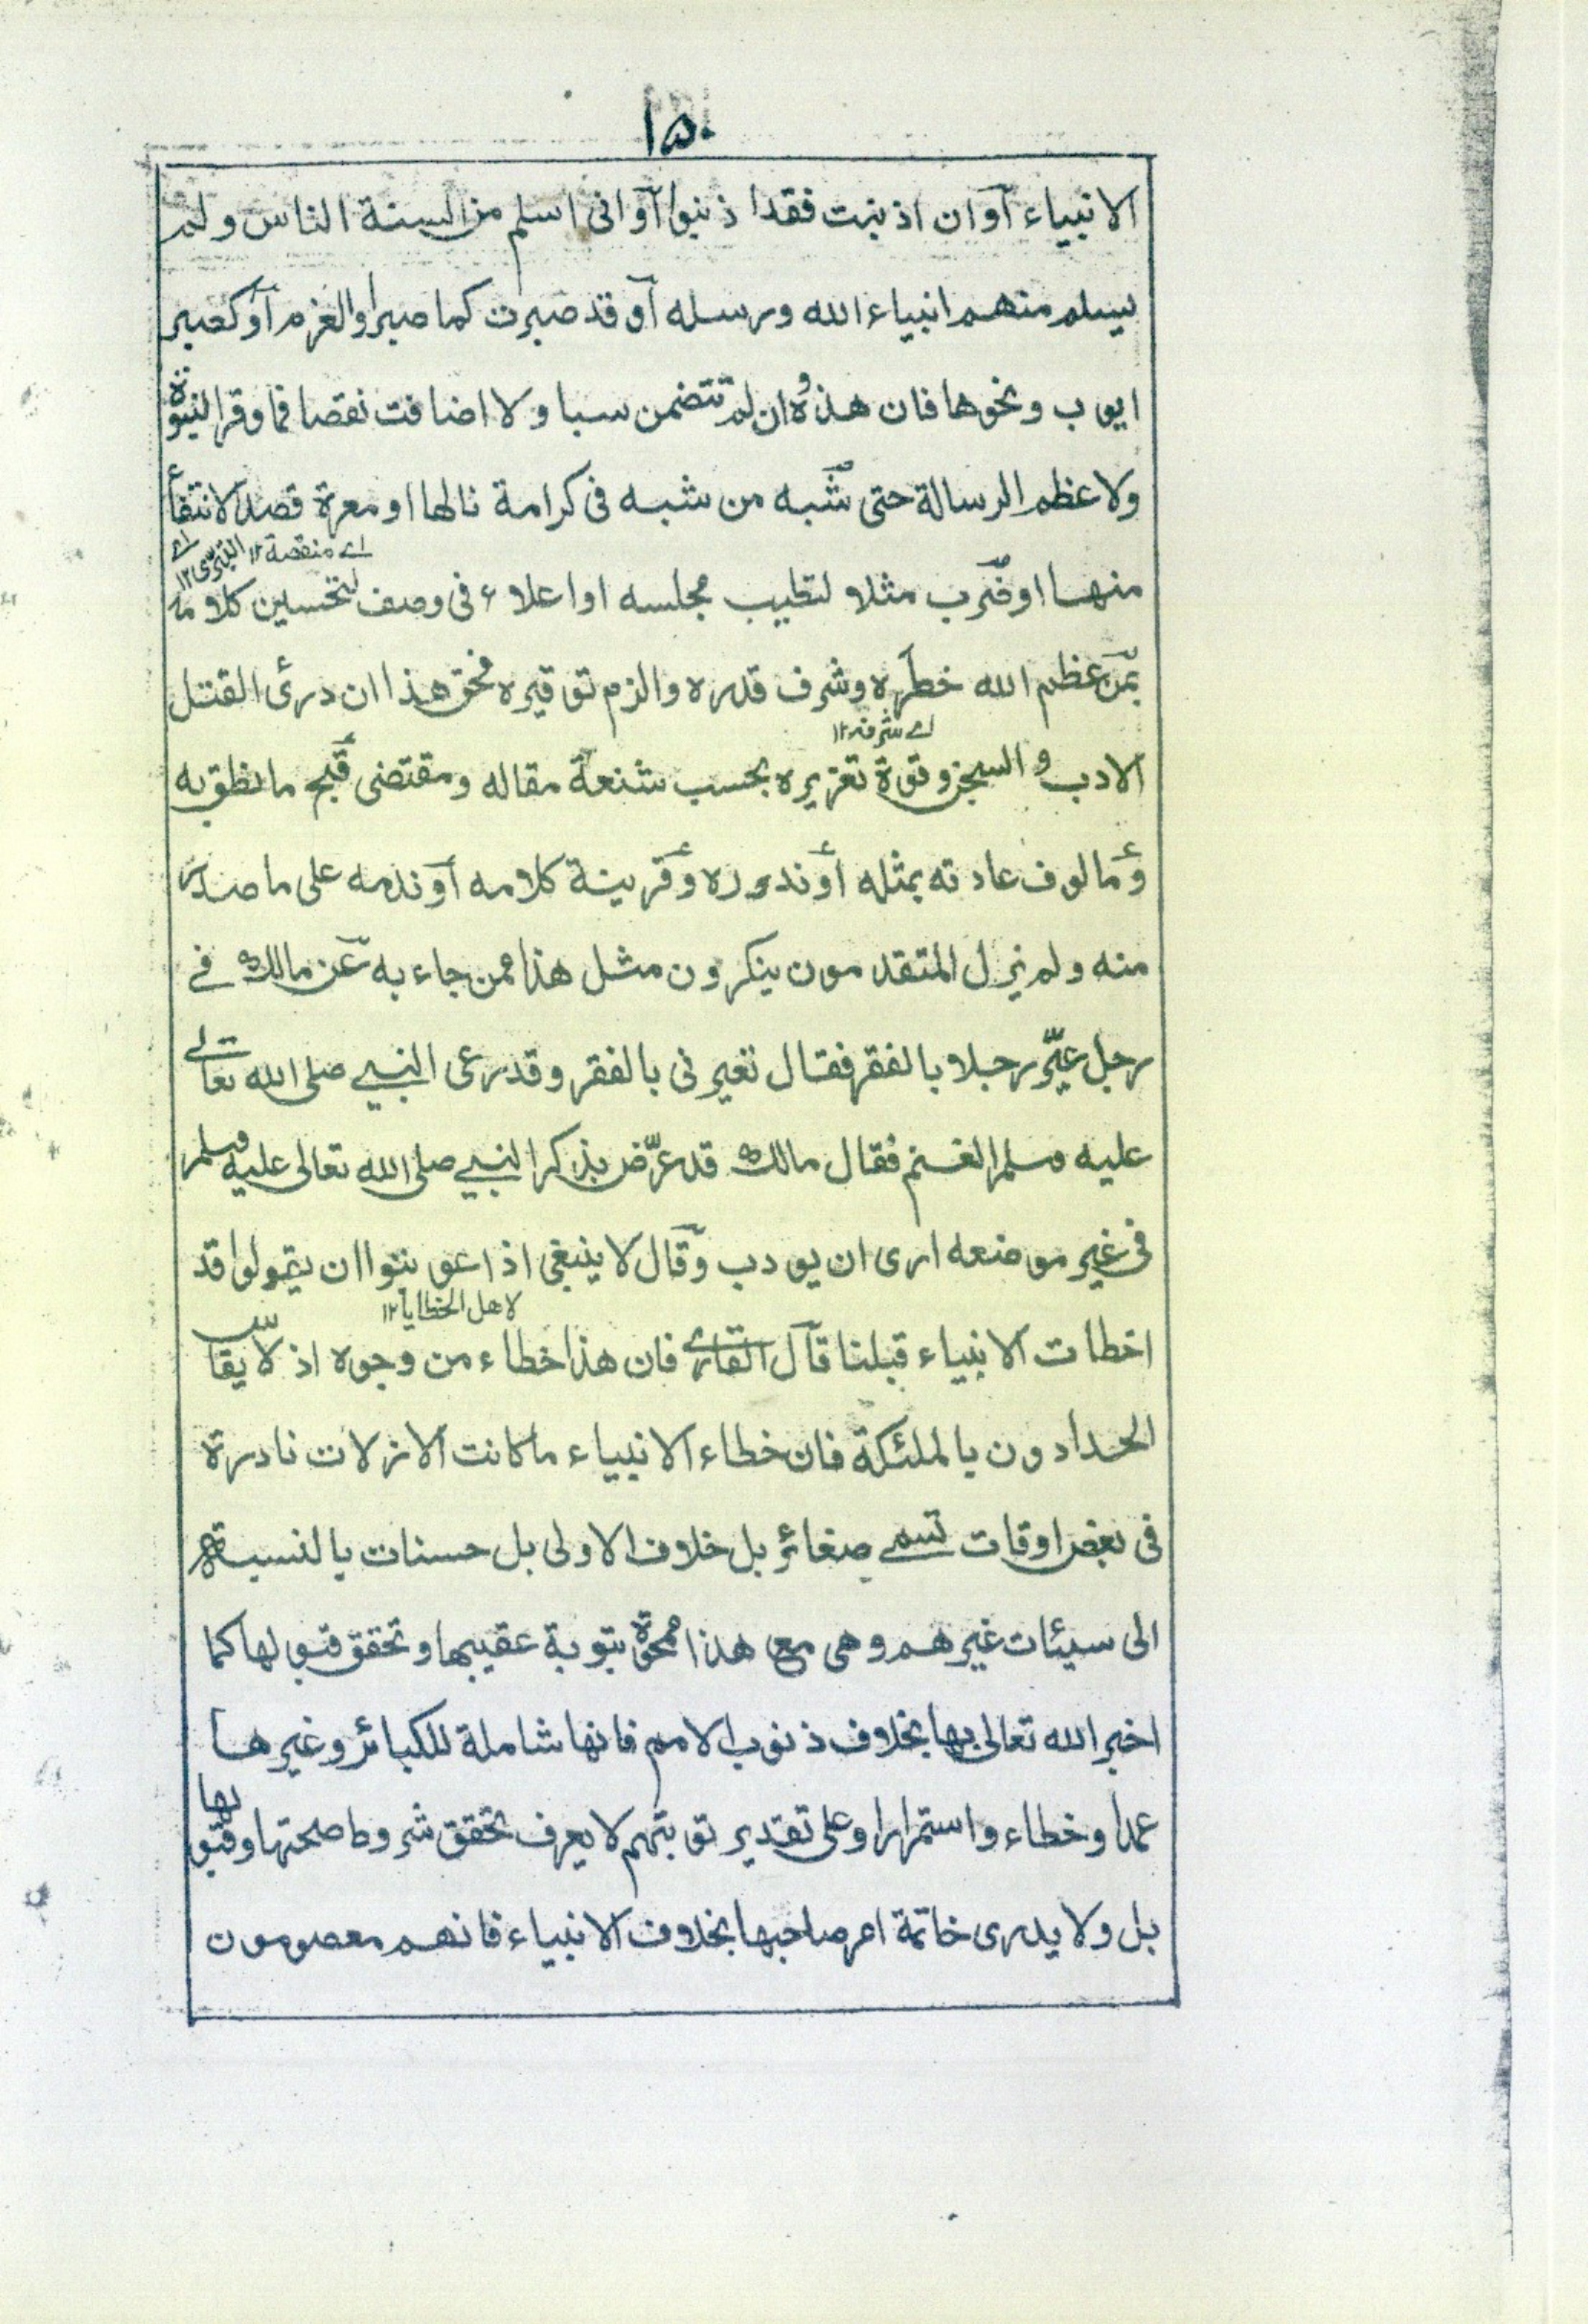 ١٥٠
الانبياء آو ان اذنبت فقد اذنبوا آو انى اسلم من السنة الناس ولم
يسلم منهم انبياء الله ورسله آو قد صبرت كما صبر اولو العزم آو كصبر
ايوب ونحوها فان هذه وان لم تتضمن سبا ولا اضافت نقصا فما وقر النبوة
ولا عظم الرسالة حتى شبه من شبه فى كرامة نالها او معرة قصد الانتفاء
اے منقصة ١٢ اے التبرى ١٢
منها او ضرب مثلا لتطيب مجلسه او اعلاء فى وصف لتحسين كلامه
بمن عظم الله خطره وشرف قدره والزم توقيره فحق هذا ان درئ القتل
اے شرفه ١٢
الادب و السجن وقوة تعزيره بحسب شنعة مقاله ومقتضى قبح ما نطق به
ومالوف عادته بمثله أو ندوره وقرينة كلامه آو ندمه على ما صدر
منه ولم يزل المتقدمون ينكرون مثل هذا ممن جاء به عن مالك فے
رجل عيّر رجلا بالفقر فقال تعيرنى بالفقر وقد رعى النبے صلى الله تعالے
عليه وسلم الغنم فقال مالك قد عرّض بذكر النبے صلى الله تعالى عليه وسلم
فى غير موضعه ارى ان يودب وقال لا ينبغى اذا عوتبوا ان يقولوا قد
لاهل الخطايا ١٢
اخطات الانبياء قبلنا قال القارے فان هذا خطاء من وجوه اذ لا يقاس
الحدادون بالملئكة فان خطاء الانبياء ما كانت الا زلات نادرة
فى بعض اوقات تسمے صغائر بل خلاف الاولى بل حسنات بالنسبة
الى سيئات غيرهم وهى مع هذا ممحوة بتوبة عقيبها وتحقق قبولها كما
اخبر الله تعالى بها بخلاف ذنوب الامم فانها شاملة للكبائر وغيرها
عمدا وخطاء واستمرارا وعلى تقدير توبتهم لا يعرف تحقق شروط صحتها وقبولها
بل ولا يدرى خاتمة امر صاحبها بخلاف الانبياء فانهم معصومون